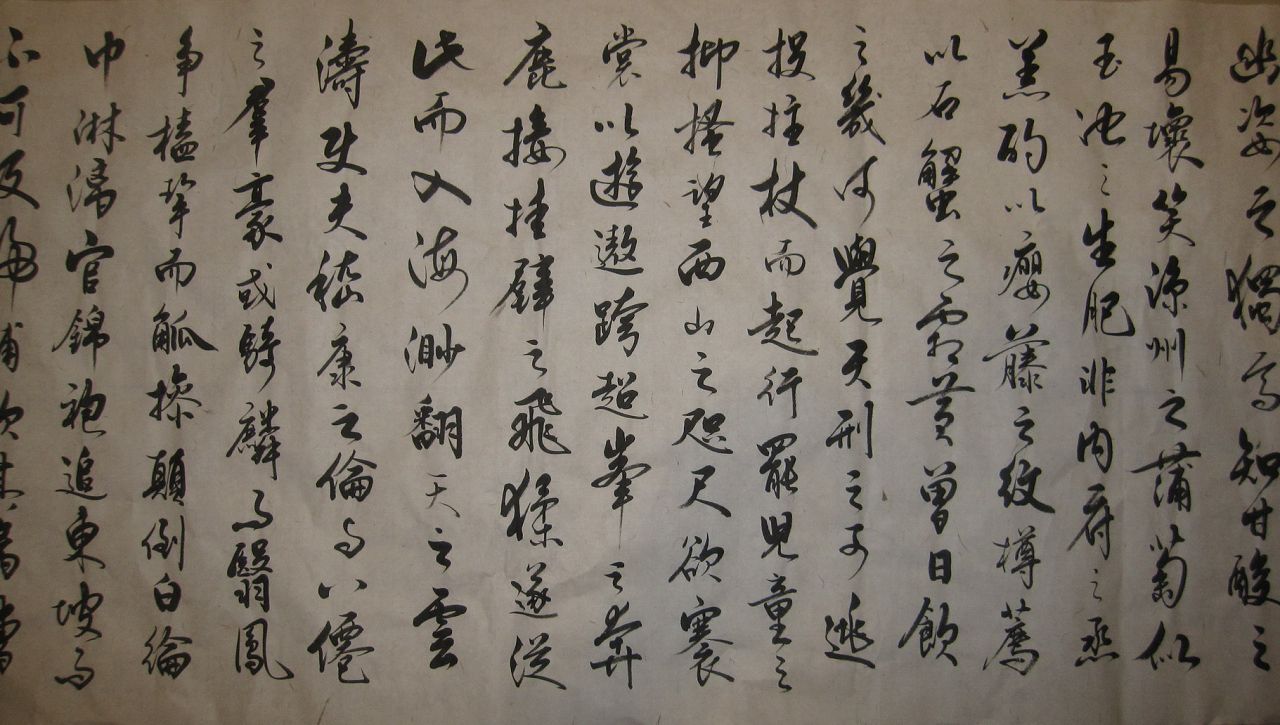 幽姿之獨高知甘酸之
易壞笑涼州之蒲萄似
玉池之生肥非内府之烝
羔酌以癭藤之紋樽薦
以石蟹之霜莫曾日飲
之幾何覺天刑之可逃
投拄杖而起行罷兒童之
抑搔望西山之咫尺欲褰
裳以遊遨跨超峯之奔
鹿接挂壁之飛猱遂從
此而入海渺翻天之雲
濤使夫嵇康之倫与八僊
之羣豪或騎麟而翳鳳
争榼挈而觚操顛倒白綸
巾淋漓宫錦袍追東坡而
不可及歸餔歠其